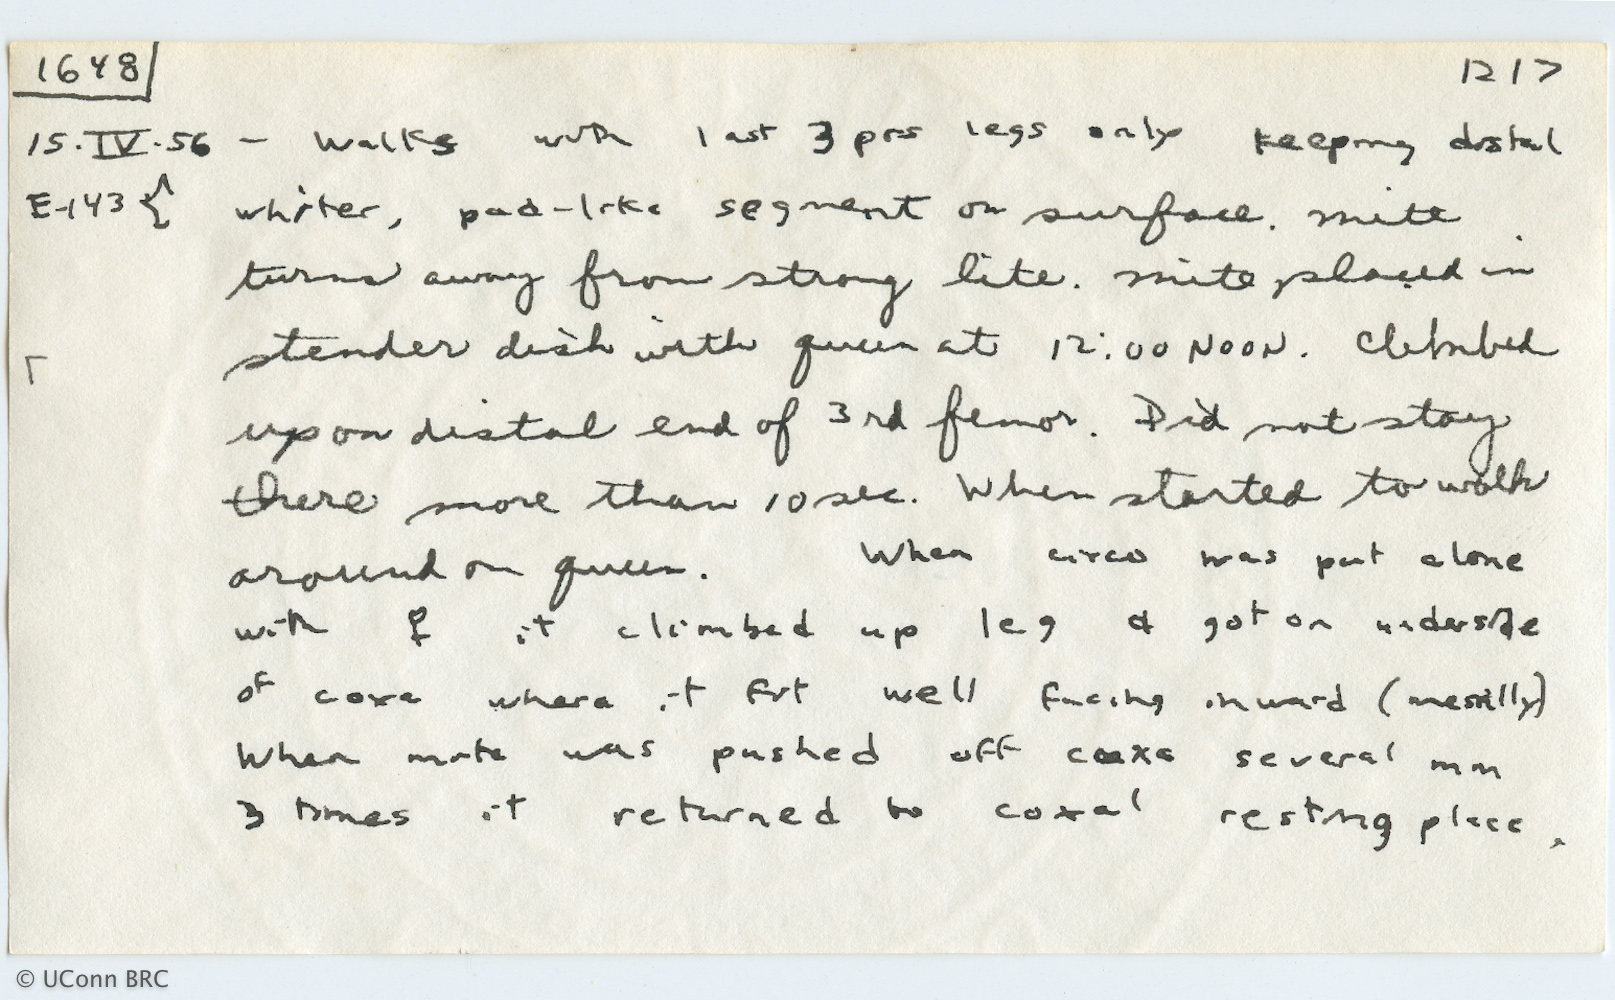 1648 1217
15.IV.56 – Walks with last 3 prs legs only keeping distal
E-143 { whiter, pad-like segment on surface. Mite
turns away from strong lite. Mite placed in
stender dish with queen at 12:00 NOON. Climbed
up on distal end of 3rd femor. Did not stay
there more than 10 sec. When started to walk
around on queen. When circo was put alone
with ☿ it climbed up leg & got on underside
of coxa where it fit well facing inward (mesally)
When mite was pushed off coxa several mm
3 times it returned to coxal resting place.
© UConn BRC